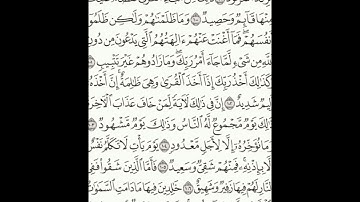 مِنْهَا قَآئِمٌ وَحَصِيدٌ ١٠٠ وَمَا ظَلَمْنَٰهُمْ وَلَٰكِن ظَلَمُوٓا۟
أَنفُسَهُمْ فَمَآ أَغْنَتْ عَنْهُمْ ءَالِهَتُهُمُ ٱلَّتِى يَدْعُونَ مِن دُونِ
ٱللَّهِ مِن شَىْءٍ لَّمَّا جَآءَ أَمْرُ رَبِّكَ وَمَا زَادُوهُمْ غَيْرَ تَتْبِيبٍ
وَكَذَٰلِكَ أَخْذُ رَبِّكَ إِذَآ أَخَذَ ٱلْقُرَىٰ وَهِىَ ظَٰلِمَةٌ إِنَّ أَخْذَهُۥٓ
أَلِيمٌ شَدِيدٌ ١٠٢ إِنَّ فِى ذَٰلِكَ لَءَايَةً لِّمَنْ خَافَ عَذَابَ ٱلْءَاخِرَةِ
ذَٰلِكَ يَوْمٌ مَّجْمُوعٌ لَّهُ ٱلنَّاسُ وَذَٰلِكَ يَوْمٌ مَّشْهُودٌ
وَمَا نُؤَخِّرُهُۥٓ إِلَّا لِأَجَلٍ مَّعْدُودٍ ١٠٤ يَوْمَ يَأْتِ لَا تَكَلَّمُ نَفْسٌ
إِلَّا بِإِذْنِهِۦ فَمِنْهُمْ شَقِىٌّ وَسَعِيدٌ ١٠٥ فَأَمَّا ٱلَّذِينَ شَقُوا۟ فَفِى
ٱلنَّارِ لَهُمْ فِيهَا زَفِيرٌ وَشَهِيقٌ ١٠٦ خَٰلِدِينَ فِيهَا مَا دَامَتِ ٱلسَّمَٰوَٰتُ